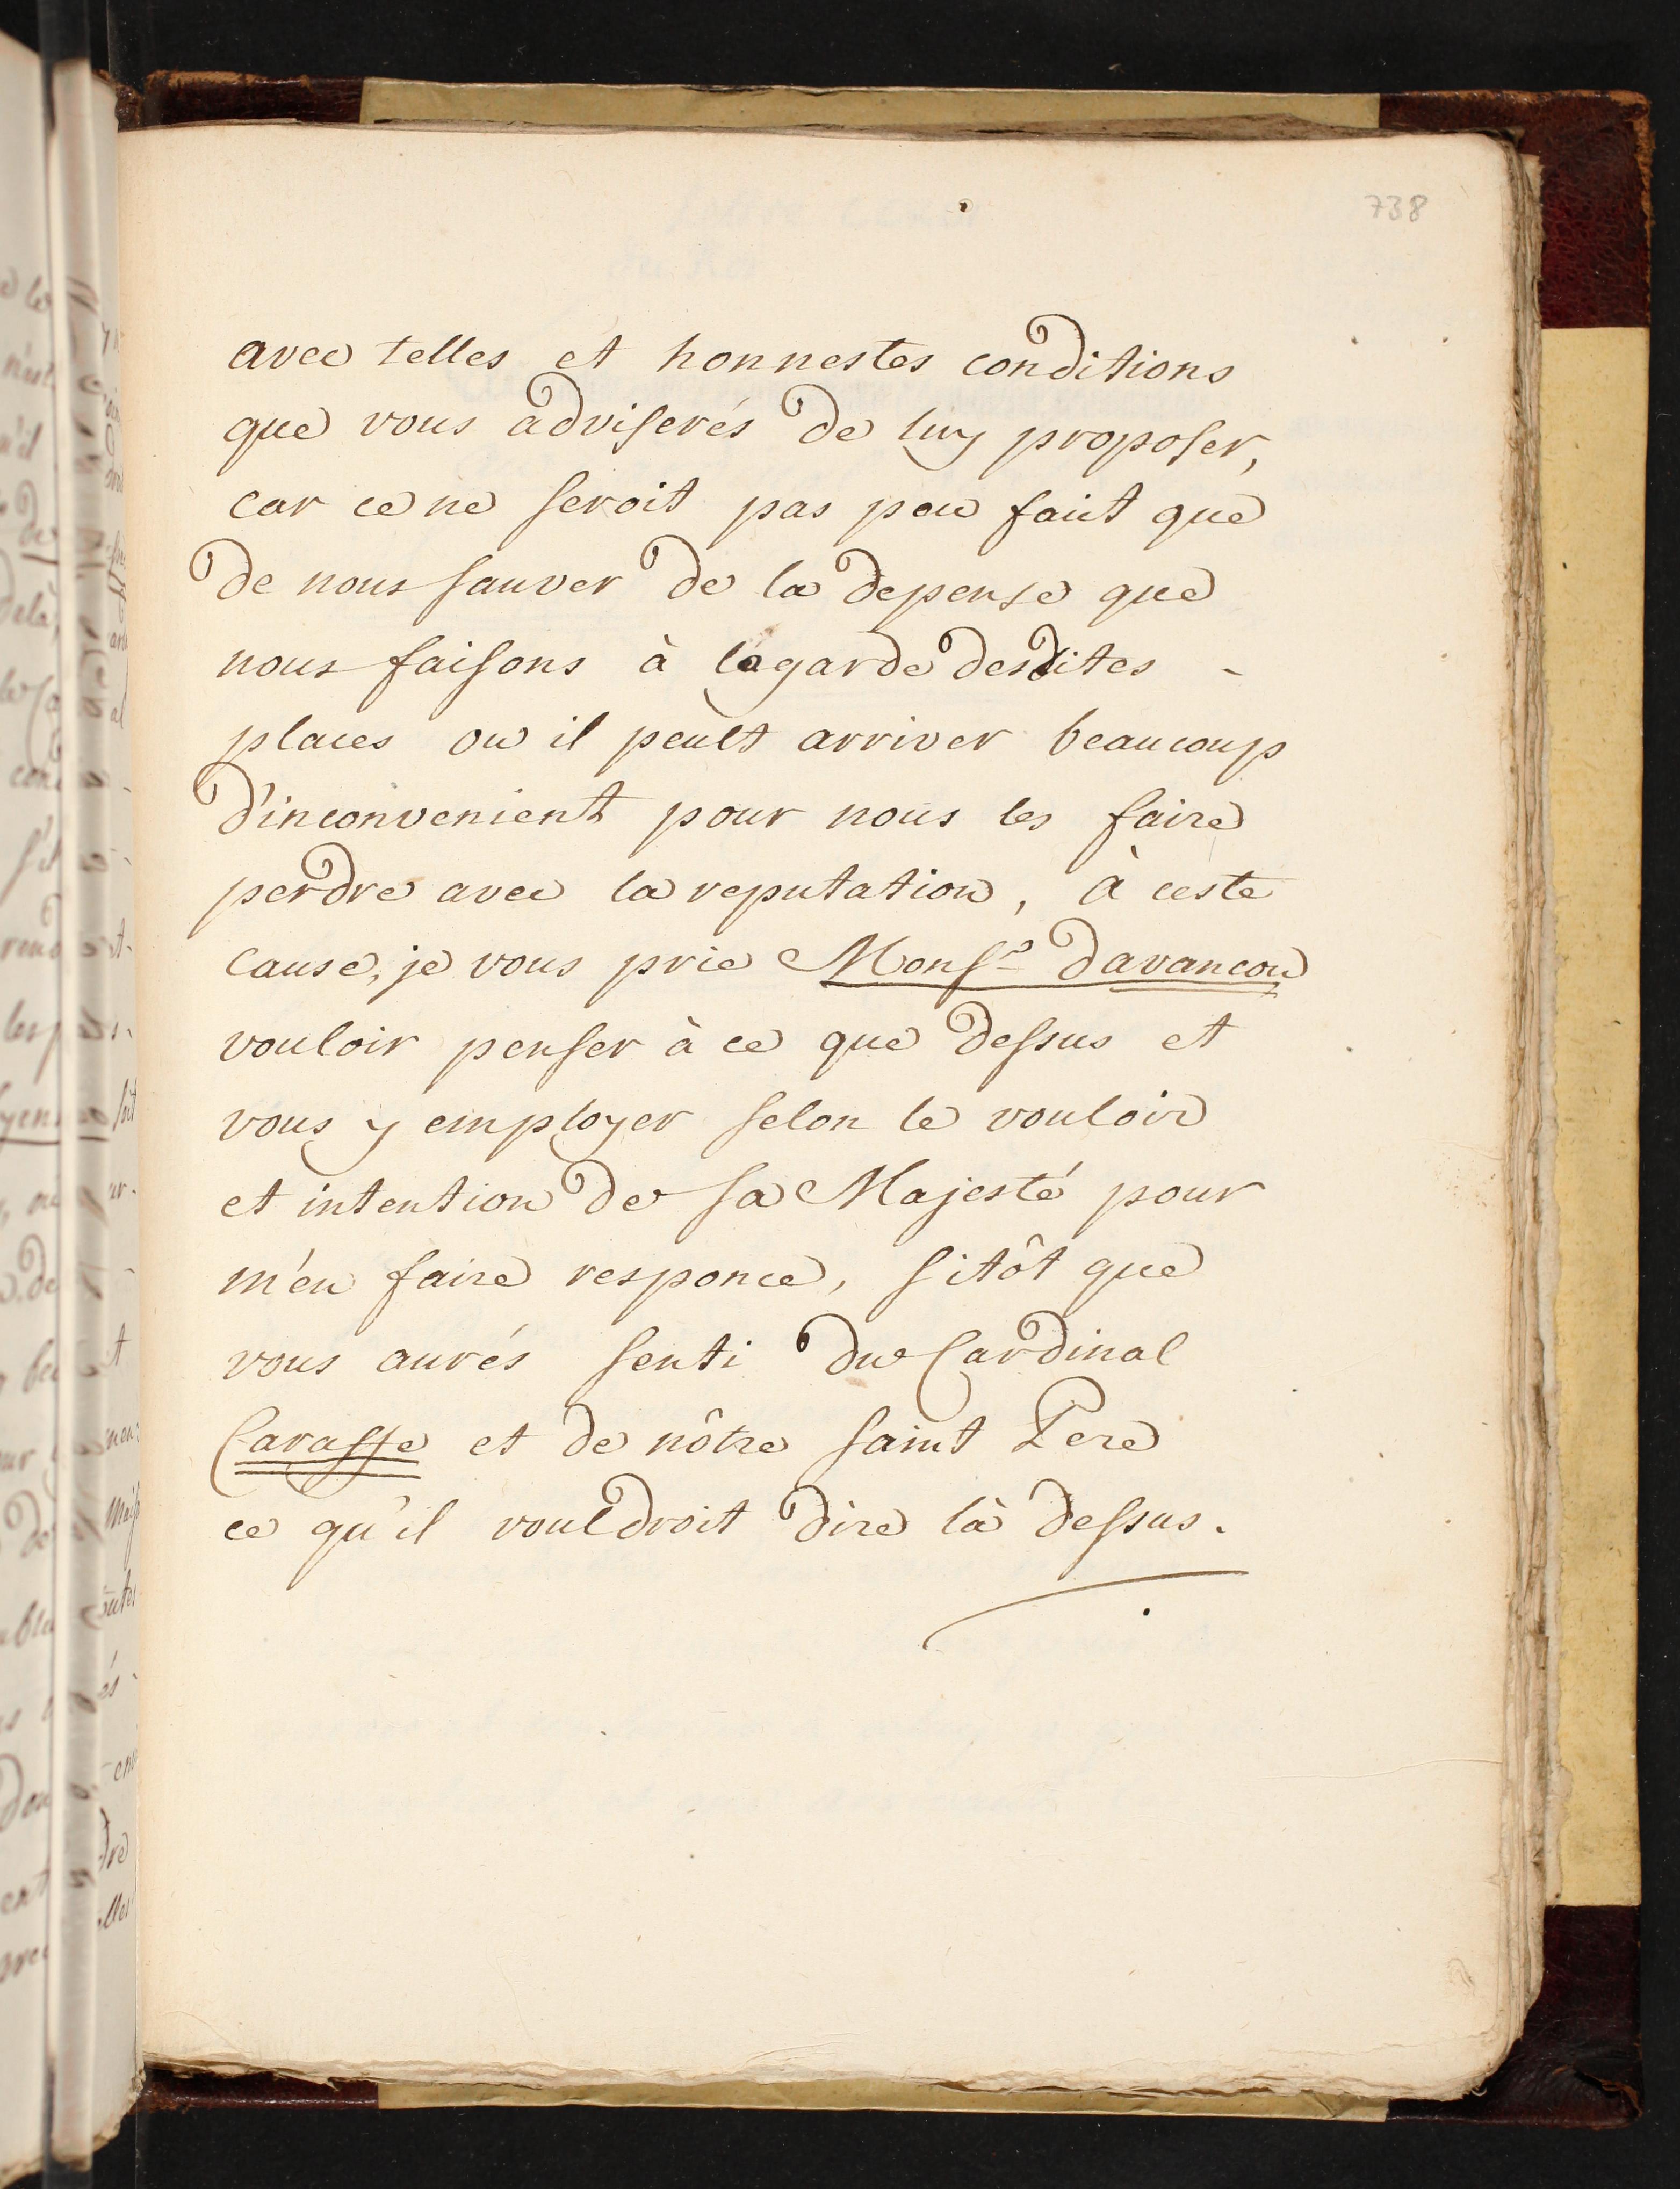 738
avec telles et honnestes conditions
que vous adviserés de luy proposer,
car ce ne seroit pas peu faict que
de nous sauver de la depense que
nous faisons à la garde desdites -
places ou il peult arriver beaucoup
d'inconvenient pour nous les faire
perdre avec la reputation, à ceste
cause, je vous prie Monsr davancon
vouloir penser à ce que dessus et
vous y employer selon le vouloir
et intention de sa Majesté pour
m'en faire responce, sitôt que
vous aurés senti du Cardinal
Caraffe et de nôtre saint Pere
ce qu'il vouldroit dire là dessus.